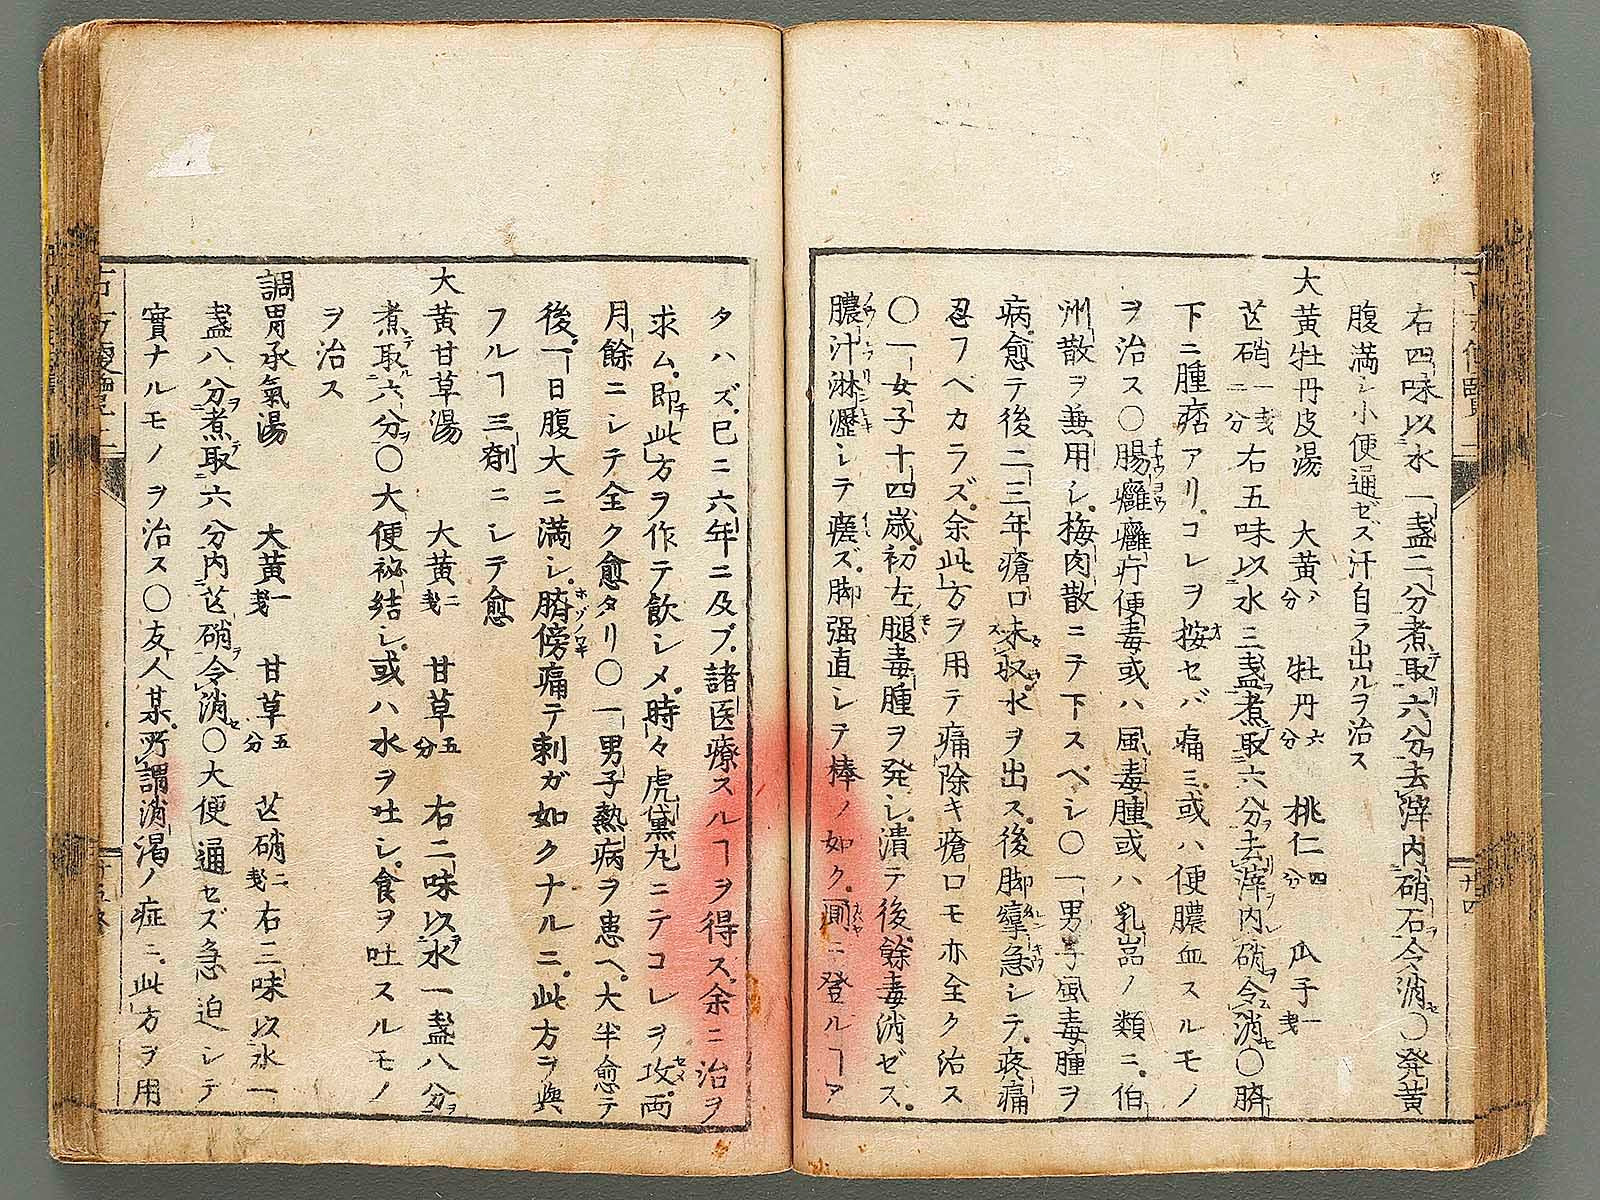 右四味以水一盞二分煮取六分去滓内硝石令消○発黄
腹満シ小便通ゼズ汗自ラ出ルヲ治ス
大黄牡丹皮湯 大黄 牡丹六分 桃仁四分 瓜子一戔
芒硝一戔二分右五味以水三盞煮取六分去滓内硝令消○臍
下ニ腫痞アリ コレヲ按セバ痛ミ 或ハ便膿血スルモノ
ヲ治ス○腸癰癰疔便毒或ハ風毒腫或ハ乳岩ノ類ニ 伯
州散ヲ兼用シ 梅肉散ニテ下スベシ○一男子風毒腫ヲ
病 愈テ後二三年瘡口未収 水ヲ出ス 後脚攣急シテ 疼痛
忍フヘカラズ 余此方ヲ用テ痛除キ瘡口モ亦全ク治ス
○一女子十四歳 初左腿毒腫ヲ発シ 潰テ後餘毒消ゼス
膿汁淋瀝シテ瘥ズ 脚强直シテ棒ノ如ク ニ登ルヿア
タハズ 巳ニ六年ニ及ブ 諸医療スルヿヲ得ス 余ニ治ヲ
求ム 即此方ヲ作テ飲シメ 時々虎黛丸ニテコレヲ攻 両
月餘ニシテ全ク愈タリ○一男子熱病ヲ患ヘ 大半愈テ
後 一日腹大ニ満シ 臍傍痛テ刺ガ如クナルニ 此方ヲ與
フルヿ三劑ニシテ愈
大黄甘草湯 大黄二戔 甘草五分 右二味以水一盞八分
煮取六分○大便祕結シ 或ハ水ヲ吐シ 食ヲ吐スルモノ
ヲ治ス
調胃承氣湯 大黄一戔 甘草五分 芒硝二戔 右三味以水一
盞八分煮取六分内芒硝令消○大便通セズ急迫シテ
實ナルモノヲ治ス○友人某 所謂消渇ノ症ニ 此方ヲ用